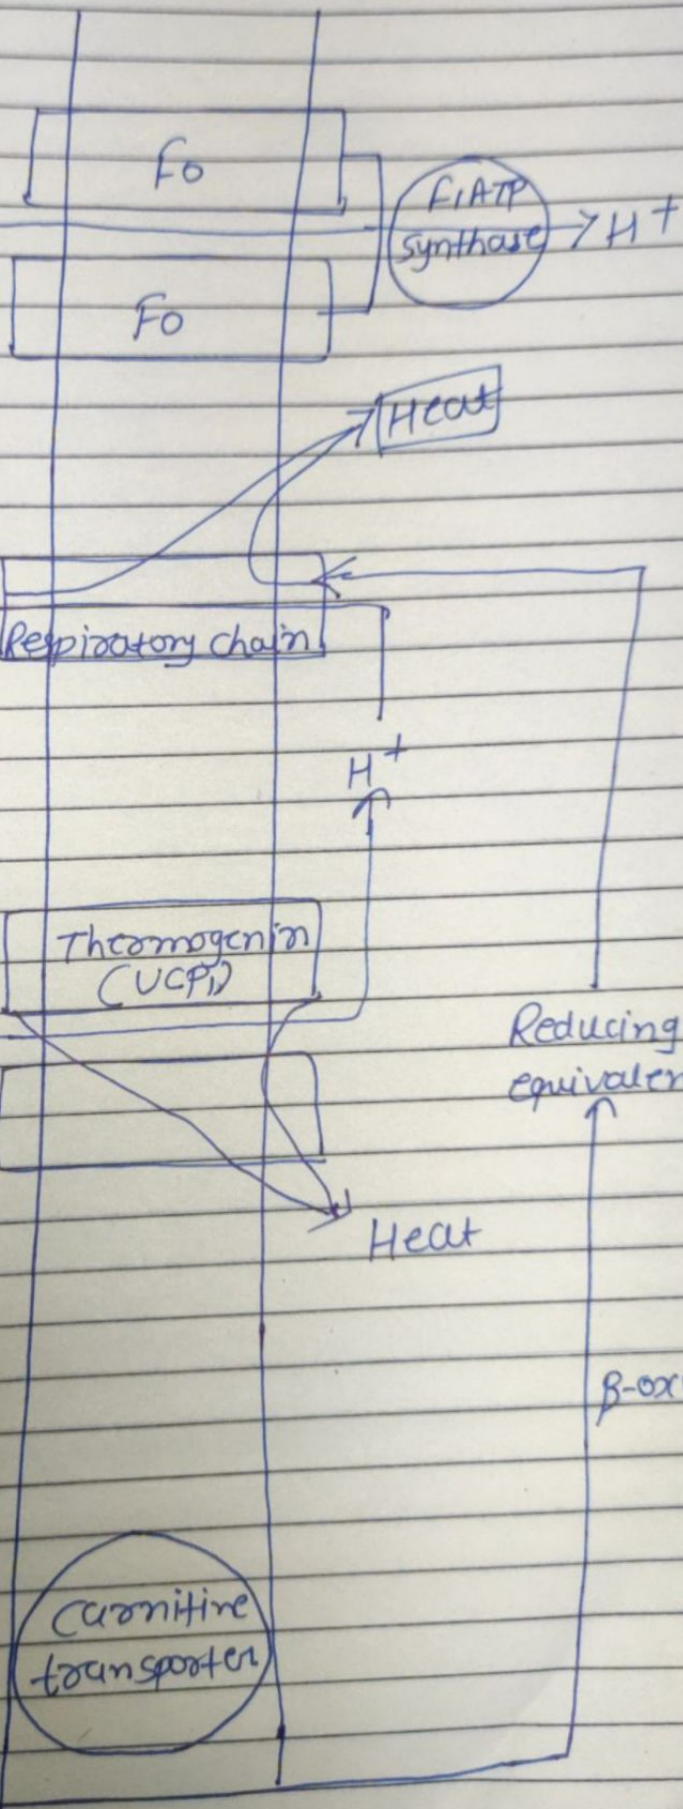 Fo
F1ATP
synthase
H+
Fo
Heat
Respiratory chain
H+
Thermogenin
(UCP1)
Reducing
equivalen
Heat
β-ox
Carnitine
transporter